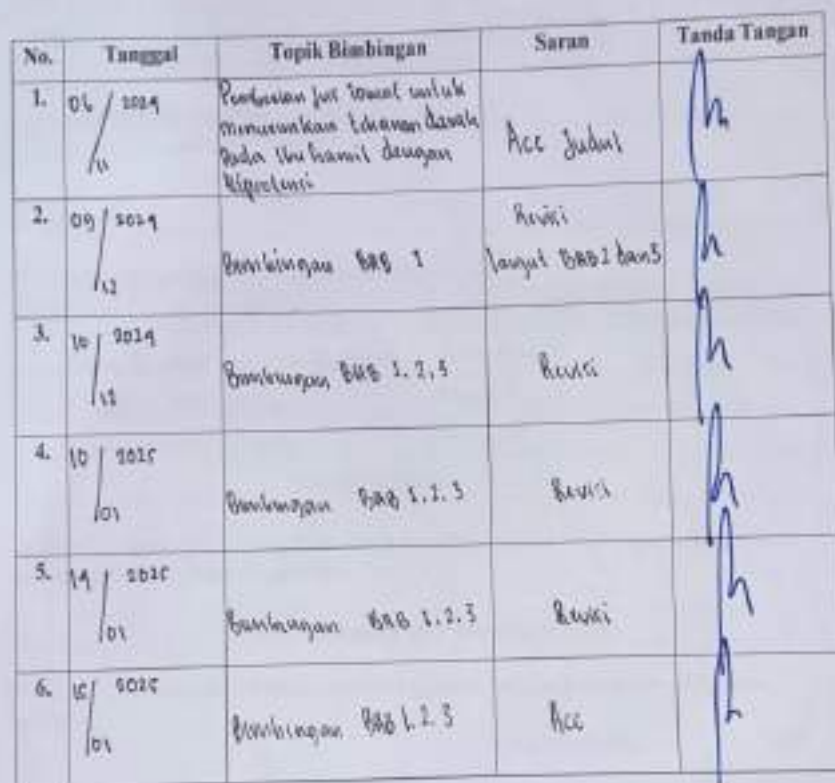 No. Tanggal Topik Bimbingan Saran Tanda Tangan
1. 06 / 2024
11
Pemberian jus tomat untuk
menurunkan tekanan darah
Pada ibu hamil dengan
Hipertensi
Acc Judul
2. 09 / 2024
12
Bimbingan BAB 1
Revisi
lanjut BAB 2 dan 3
3. 10 / 2024
12
Bimbingan BAB 1, 2, 3
Revisi
4. 10 / 2025
01
Bimbingan BAB 1, 2, 3
Revisi
5. 14 / 2025
01
Bimbingan BAB 1, 2, 3
Revisi
6. 15 / 2025
01
Bimbingan BAB 1, 2, 3
Acc